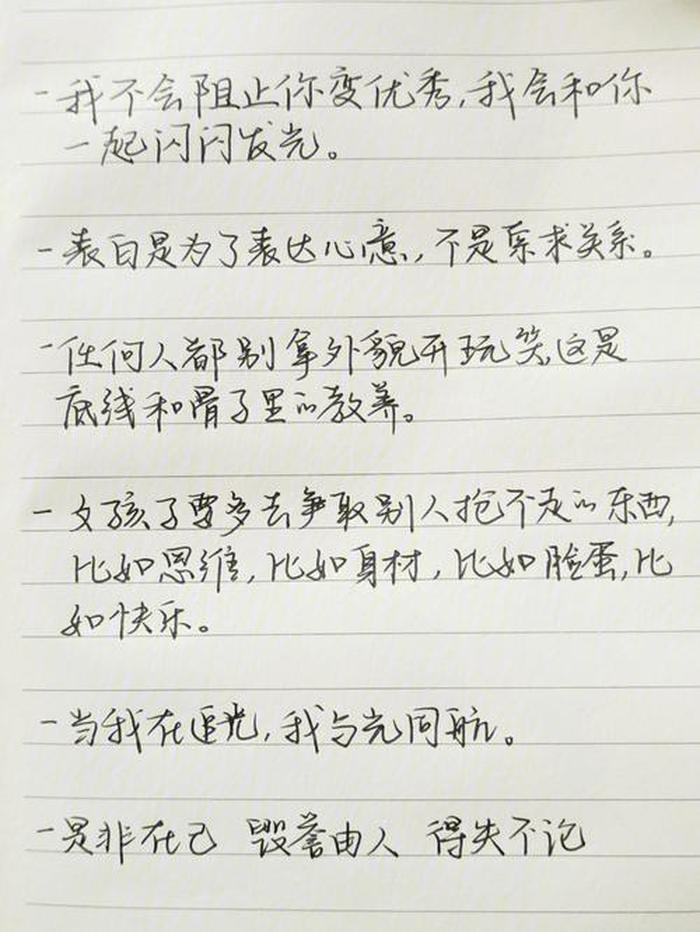 -我不会阻止你变优秀,我会和你
一起闪闪发光。
-表白是为了表达心意,不是索求关系。
-任何人都别拿外貌开玩笑,这是
底线和骨子里的教养。
-女孩子要多去争取别人抢不走的东西,
比如思维,比如身材,比如脸蛋,比
如快乐。
-当我在追光,我与光同航。
-是非在己 毁誉由人 得失不论